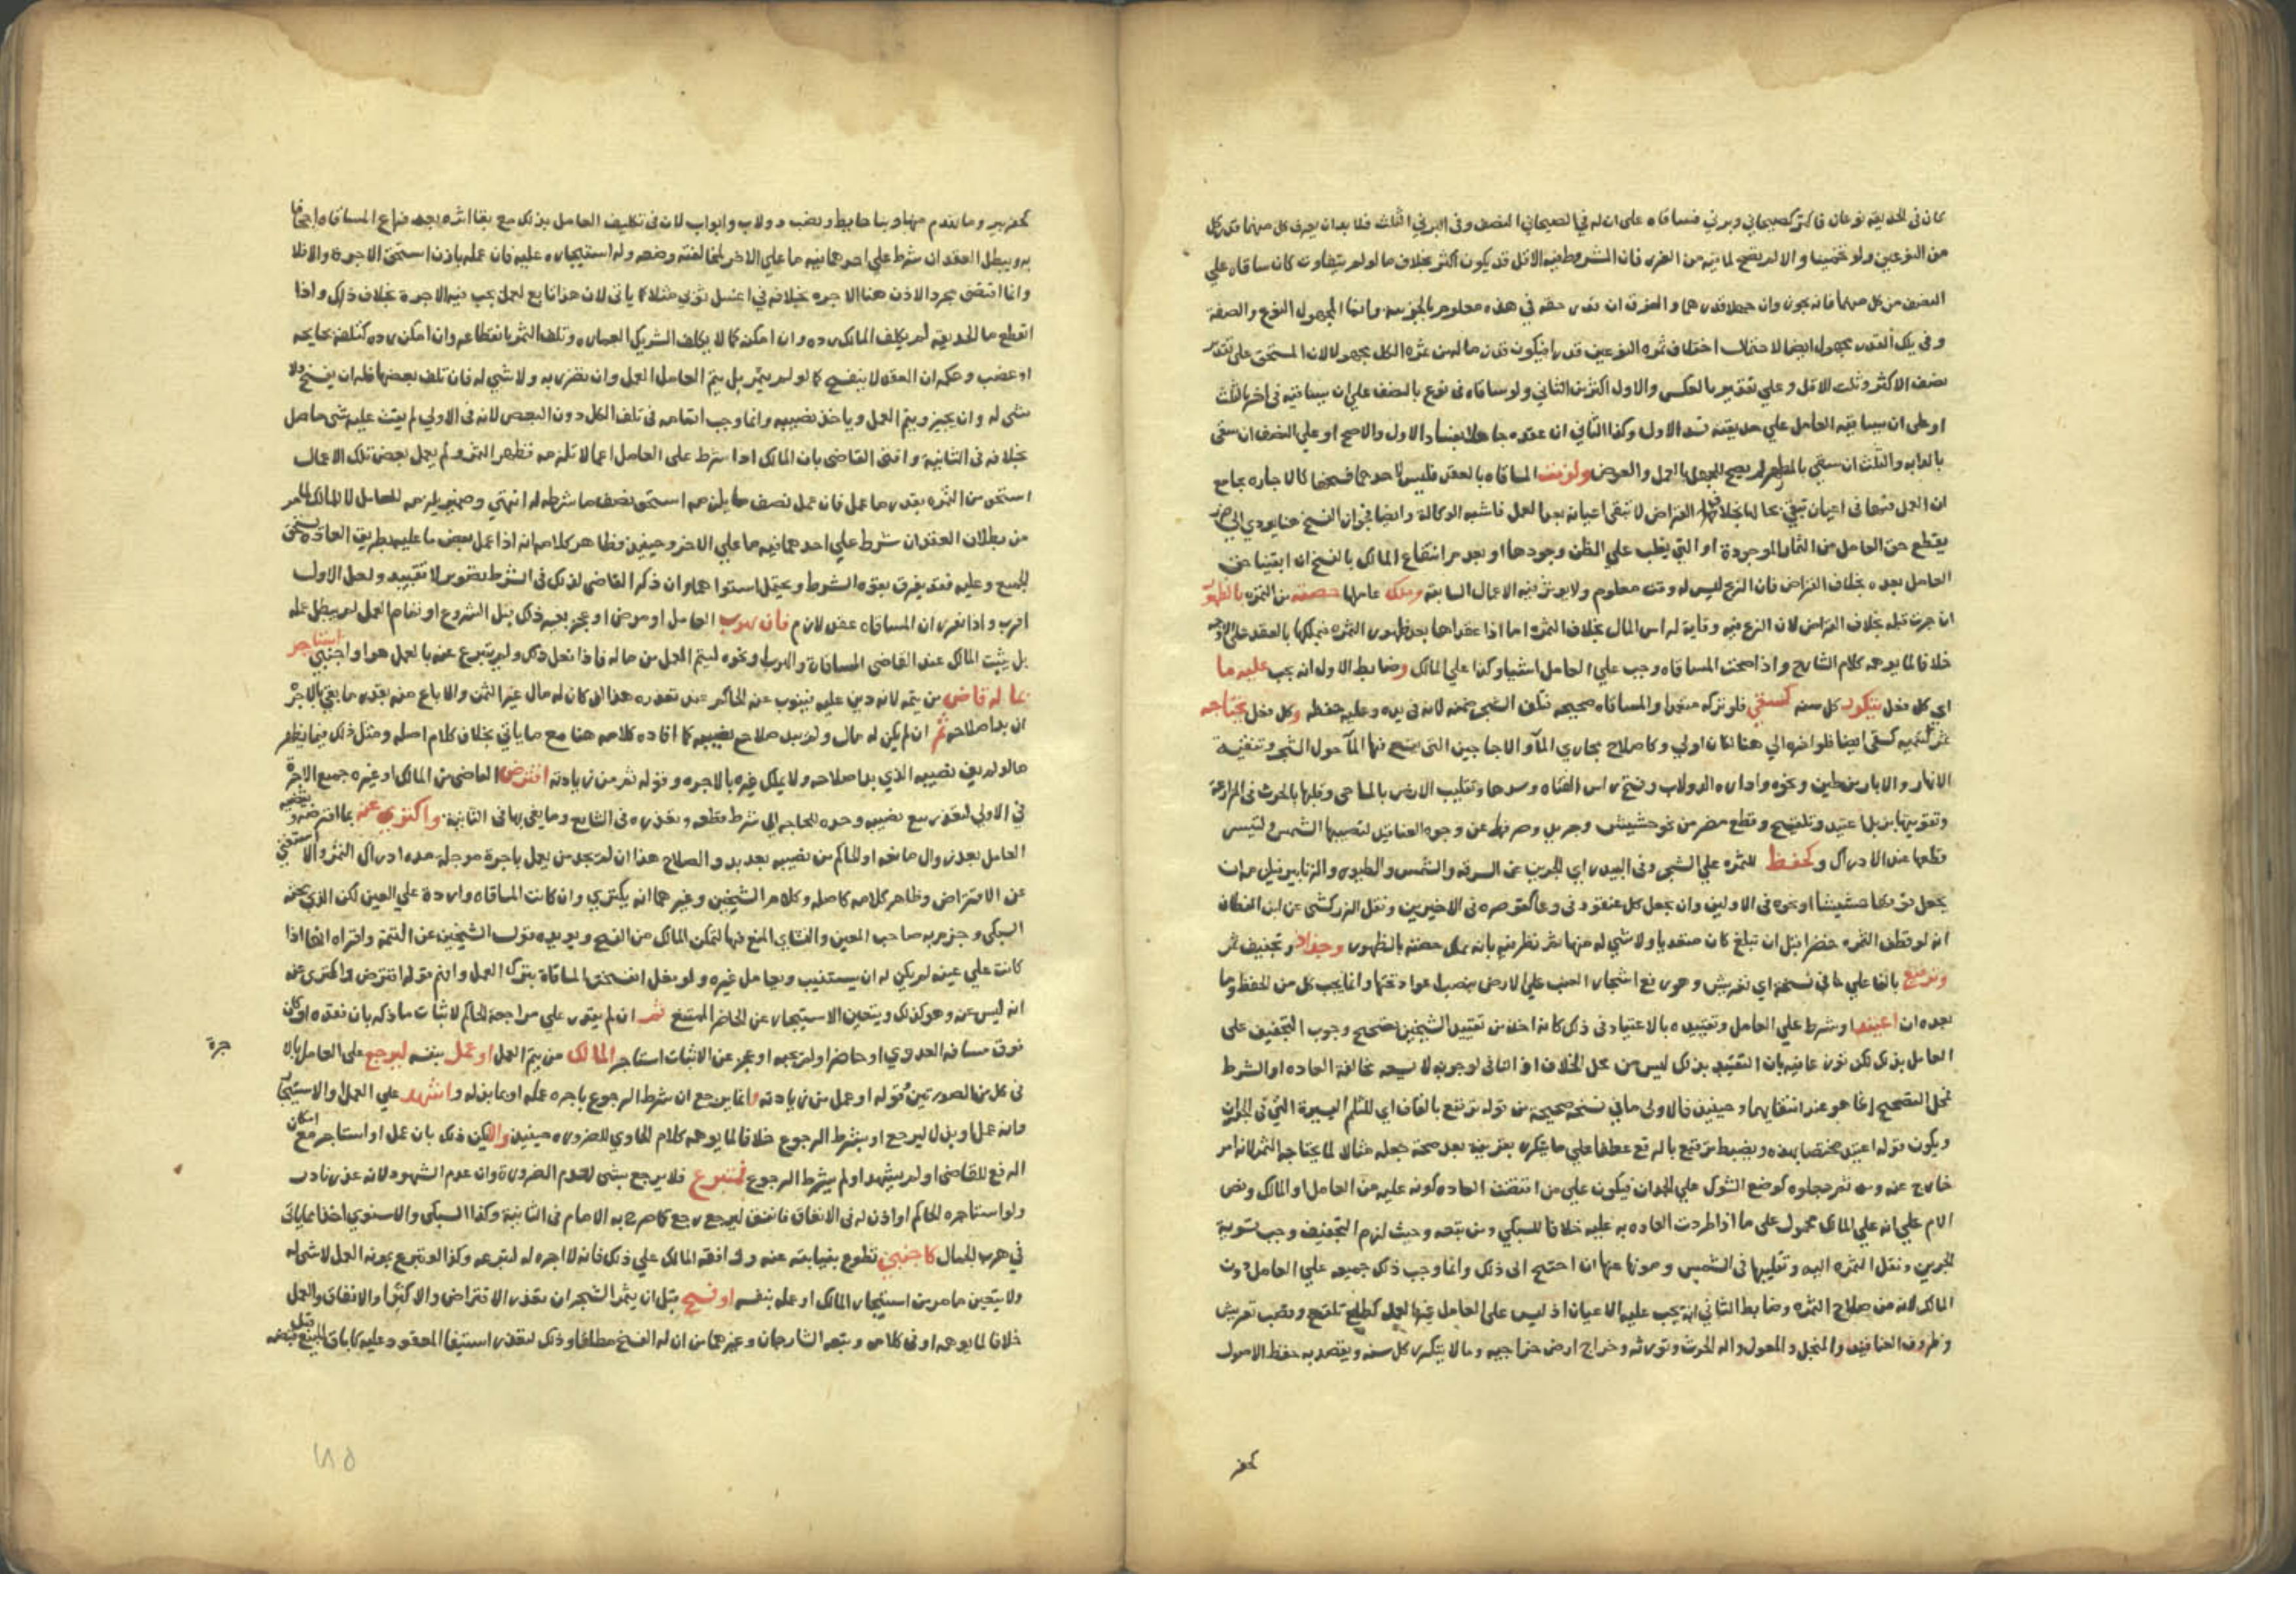 كان في الحديقة نوعان فاكثر كصيحاني وبرني فساقاه على ان له في الصيحاني النصف وفي البرني الثلث فلا بد ان يعرف كل منهما قدر كل
من النوعين ولو تخمينا والا لم يصح لما فيه من الغرر فان المشروط فيه الاقل قد يكون اكثر بخلاف ما لو لم يتفاوت كان ساقاه علي
النصف من كل منهما فانه يجوز وان جهلا قدرهما والفرق ان قدر حقه في هذه معلوم بالجزيية وانما المجهول النوع والصفة
وفي تلك القدر مجهول ايضا لاحتمال اختلاف ثمرة النوعين قدرا فيكون قدر ماله من ثمرة الكل مجهولا لان المستحق على تقدير
نصف الاكثر وثلث الاقل وعلي تقدير بالعكس والاول اكثر من الثاني ولو ساقاه في نوع بالنصف علي ان يساقيه في اخر بالثلث
او على ان يساقيه العامل علي حديقته فسد الاول وكذا الثاني ان عقده جاهلا بفساد الاول والا صح او علي النصف ان سقى
بالدابه والثلث ان سقى بالمطر لم يصح للجهل بالعمل والعوض ولزمت المساقاه بالعقد فليس لاحدهما فسخها كالاجاره بجامع
ان العمل فيهما في اعيان تبقى بحالها بخلاف القراض لا تبقى اعيانه بعد العمل فاشبه الوكالة وايضا فجواز الفسخ هنا يودي الي ضرر
يقطع حق العامل من الثمار الموجودة او التي يغلب علي الظن وجودها او بعدم انتفاع المالك بالفسخ ان ابقينا حق
العامل بعده بخلاف القراض فان الربح ليس له وقت معلوم ولا يوثر فيه الاعمال السابقة وملك عاملها حصته من الثمرة بالظهور
ان جرت قبله بخلاف القراض لان الربح فيه وقاية لراس المال بخلاف الثمرة اما اذا عقداها بعد ظهور الثمره فيملكها بالعقد على الاوجه
خلافا لما يوهمه كلام الشارح واذا صحت المساقاه وجب علي العامل اشيا وكذا علي المالك وضابط الاول انه يجب عليه ما
اي كل فعل يتكرر كل سنه كسقي فلو تركه متعمدا والمساقاه صحيحه فتلف الشجر ضمنه لانه في يده وعليه حفظه وكل فعل يحتاجه
ثمر لتنميه كسقي ايضا فلو اخره الي هنا لكان اولي وكاصلاح مجاري الماء والاجاجين التى يجتمع فيها الماء حول الشجر وتنقية
الانهار والابار من طين ونحوه وادارة الدولاب وفتح راس القناه وسدها وتقليب الارض بالمساحي وقلبها بالحرث في المزارعة
وتقويتها بزبل اعتيد وتلقيح وقطع مضر من نحو حشيش وجريد وصرفه عن وجوه العناقيد لتصيبها الشمس وليتيسر
قطعها عند الادراك وكحفظ للثمره علي الشجر وفي البيدر اي الجرين عن السرقه والشمس والطيور والزنابير فيلزمه ان
يجعل نوعها حشيشا او نحوه في الاولين وان يجعل كل عنقود في وعا كقوصره في الاخيرين ونقل الزركشي عن ابن القطان
انه لو قطف الثمره خضرا قبل ان تبلغ كان متعديا ولا شي له منها ثم نظر فيه بانه ملك حصته بالظهور وجذاذ وتجفيف ثمر
وترفيع بالفا علي ما في نسخة اي تعريش وهو رفع اشجار العنب علي الارض بنصب اعواد تحتها وانما يجب كل من الحفظ وما
بعده ان اعتيد او شرط علي العامل وتقييده بالاعتياد في ذلك كانه اخذه من تقييد الشيخين تصحيح وجوب التجفيف على
العامل بذلك لكن نوزعا فيه بان التقييد بذلك ليس من محل الخلاف اذ النافي لوجوبه لا تسعه مخالفة العاده او الشرط
فمحل التصحيح انما هو عند انتفايهما وحينيذ فالاولى ما في نسخه صحيحة من قوله ترقيع بالقاف اي للثلم اليسيرة التي في الجدار
ويكون قوله اعتيد مختصا بهذه ويضبط ترقيع بالرفع عطفا علي ما يتكرر بقرينة بعد صحة جعله مثالا لما يحتاجه الثمر لانه امر
خارج عنه ومن ثم جعلوه كوضع الشوك علي الجدار فيكون علي من اقتضت العاده كونه عليه من العامل او المالك ونص
الام علي انه علي المالك محمول على ما اذا اطردت العاده به عليه خلافا للسبكي ومن تبعه وحيث لزمه التجفيف وجب تسوية
الجرين ونقل الثمره اليه وتقليبها في الشمس ومونها عنها ان احتيج الى ذلك وانما وجب ذلك جميعه علي العامل دون
المالك لانه من صلاح الثمره وضابط الثاني انه يجب عليه الاعيان اذ ليس على العامل فيها العمل كطلع تلقيح وقصب تعريش
وظروف العناقيد والمنجل والمعول والة الحرث وثوره وخراج ارض خراجيه وما لا يتكرر كل سنه ويقصد به حفظ الاصول
كحفر
كحفر بير وما يقدم منها وبنا حايط ونصب دولاب وابواب لان في تكليف العامل بذلك مع بقا اثره بعد فراغ المساقاه اجحافا
به ويبطل العقد ان شرط علي احدهما فيه ما علي الاخر لمخالفته وضعه وله استيجاره عليه فان عمله باذن استحق الاجرة والا فلا
وانما اقتضى مجرد الاذن هنا الاجره بخلافه في اغسل ثوبي مثلا كما ياتى لان هذا تابع لعمل يجب فيه الاجرة بخلاف ذلك واذا
انقطع ما الحديقه لم يكلف المالك رده وان امكن كما لا يكلف الشريك العماره وتلف الثمر بانقطاعه وان امكن رده كتلفه بجايحه
او غصب وحكمه ان العقد لا ينفسخ كما لو لم يثمر بل يتم العامل العمل وان تضرر به ولا شي له فان تلف بعضها فله ان يفسخ ولا
شى له وان يجيز ويتم العمل وياخذ نصيبه وانما وجب اتمامه فى تلف الكل دون البعض لانه فى الاولي لم يثبت عليه شى حاصل
بخلافه فى الثانية وافتى القاضى بان المالك اذا شرط على العامل اعمالا تلزمه فظهر الثمر ولم يعمل بعض تلك الاعمال
استحق من الثمره بقدر ما عمل فان عمل نصف ما يلزمه استحق نصف ما شرطه له انتهي وضمير يلزمه للعامل لا للمالك لما مر
من بطلان العقد ان شرط علي احدهما فيه ما علي الاخر وحينيذ فظاهر كلامه انه اذا عمل بعض ما عليه بطريق العاده يستحق
الجميع وعليه فقد يفرق بقوة الشرط ويحتمل استواهما وان ذكر القاضى لذلك فى الشرط تصوير لا تقييد ولعل الاول
اقرب واذا تقرر ان المساقاه عقد لازم فان هرب العامل او مرض او عجز بغير ذلك قبل الشروع او تمام العمل لم يبطل عمله
بل يثبت المالك عند القاضى المساقاة والهرب ونحوه ليتم العمل من ماله فاذا فعل ذلك ولم يتبرع عنه بالعمل هو او اجنبي استاجر
بماله قاض من يتمه لانه دين عليه فينوب عنه الحاكم عند تعذره هذا ان كان له مال غير الثمر والا باع منه بقدر ما يفي بالاجر
ان بدا صلاحه ثم ان لم يكن له مال ولم يبد صلاح نصيبه كما افاده كلامه هنا مع ما ياتي بخلاف كلام اصله ومثل ذلك فيما يظهر
ما لو لم يف نصيبه الذي بدا صلاحه ولا يملك غيره بالاجره وقوله ثم من زيادته اقترض القاضى من المالك او غيره جميع الاجرة
في الاولي لتعذر بيع نصيبه وحده للحاجه الى شرط قطعه وتعذره فى الشايع وما يفى بها في الثانية واكتري عنه بما اقترضه ويقضيه
العامل بعد زوال مانعه او الحاكم من نصيبه بعد بدو الصلاح هذا ان لم يجد من يعمل باجرة موجله مده ادراك الثمر والا استغنى
عن الاقتراض وظاهر كلامه كاصله وكلام الشيخين وغيرهما انه يكتري وان كانت المساقاه وارده علي العين لكن الذي بحثه
السبكي وجزم به صاحب المعين والنشاي المنع فيها لتمكن المالك من الفسخ ويويده قول الشيخين عن التتمة واقراه انها اذا
كانت علي عينه لم يكن له ان يستنيب ويعامل غيره ولو فعل انفسخت المساقاة بتركه العمل وافهم قوله اقترض واكترى عنه
انه ليس عنه وهو كذلك ويتعين الاستيجار عن الحاضر الممتنع ثم ان لم يقدر علي مراجعة الحاكم لاثبات ما ذكر بان فقده او كان
فوق مسافه العدوي او حاضرا ولم يجبه او عجز عن الاثبات استاجر المالك من يتم العمل او عمل بنفسه ليرجع على العامل بالا
جرة
فى كل من الصورتين وقوله او عمل من زيادته وانما يرجع ان شرط الرجوع باجرة عمله او بما بذله واشهد علي العمل والاستيجار
وانه عمل او بذل ليرجع او بشرط الرجوع خلافا لما يوهمه كلام الحاوي للضروره حينيذ والا يكن ذلك بان عمل او استاجر مع امكان
الرفع للقاضى او لم يشهد او لم يشرط الرجوع فمتبرع فلا يرجع بشى لعدم الضرورة وان عدم الشهود لانه عذر نادر
ولو استاجره الحاكم او اذن له فى الانفاق فانفق ليرجع رجع كما صرح به الامام فى الثانية وكذا السبكى والاسنوي اخذا مما ياتى
في هرب الجمال كاجنبي تطوع بنيابته عنه وان وافقه المالك علي ذلك فانه لا اجره له لتبرعه وكذا لو تبرع بمونه العمل لا شى له
ولا يتعين ما مر من استيجار المالك او عمله بنفسه او فسخ قبل ان يثمر الشجر ان تعذر الاقتراض والاكترا والانفاق والعمل
خلافا لما يوهمه اوفى كلامه وتبعه الشارحان وغيرهما من ان له الفسخ مطلقا وذلك لتعذر استيفا المعقود عليه كاباق المبيع قبل قبضه